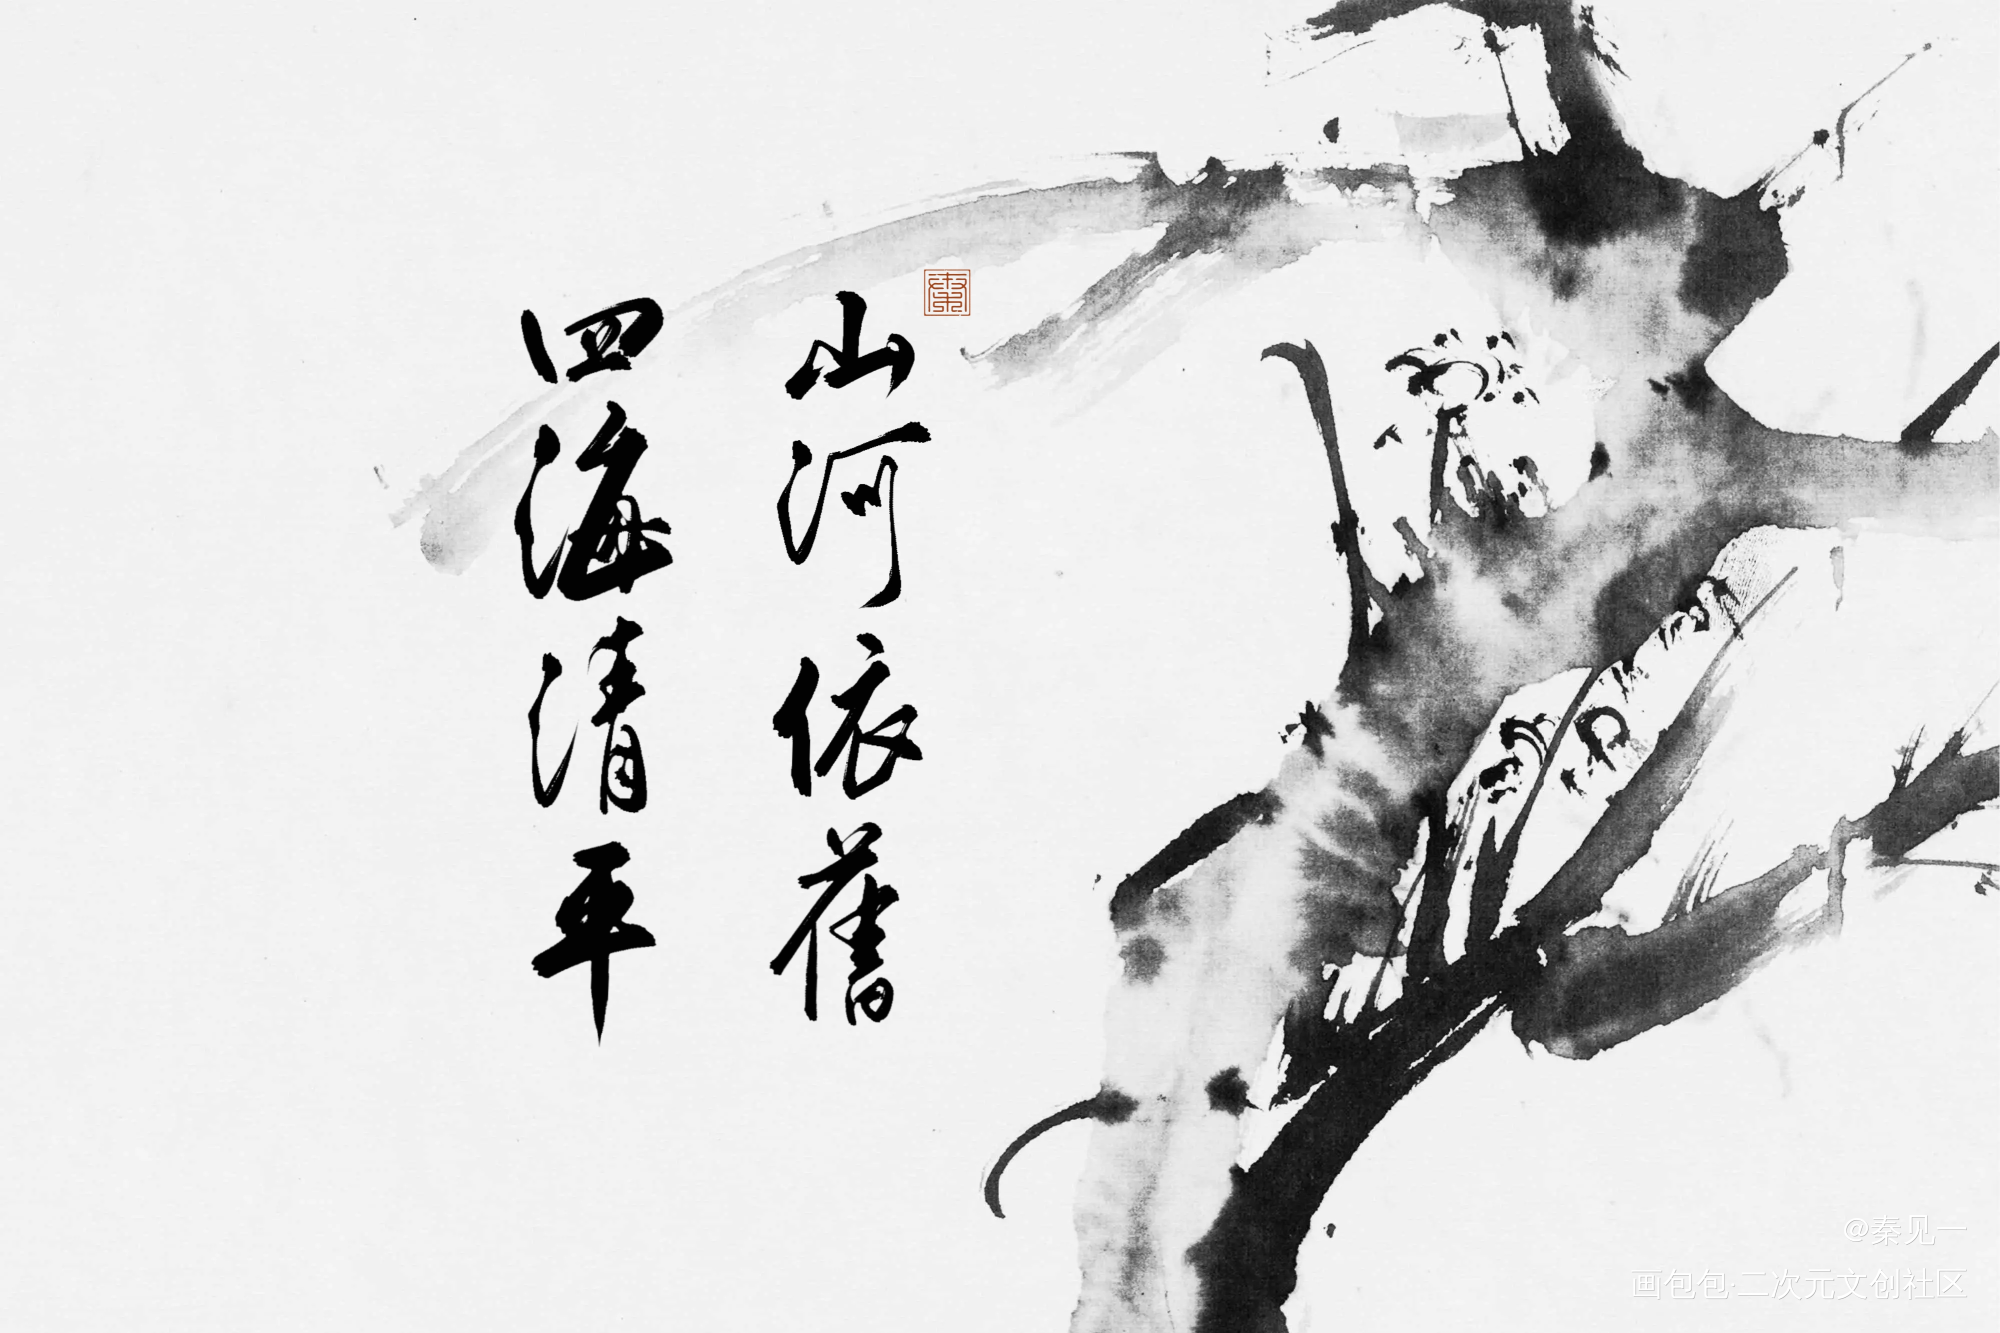 山河依舊
四海清平
@秦见一
画包包·二次元文创社区